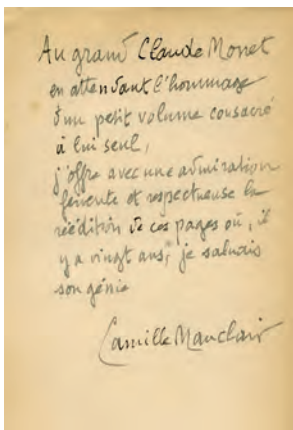 Au grand Claude Monet
en attendant l'hommage
d'un petit volume consacré
à lui seul,
j'offre avec une admiration
fervente et respectueuse la
réédition de ces pages où, il
y a vingt ans, je saluais
son génie
Camille Mauclair